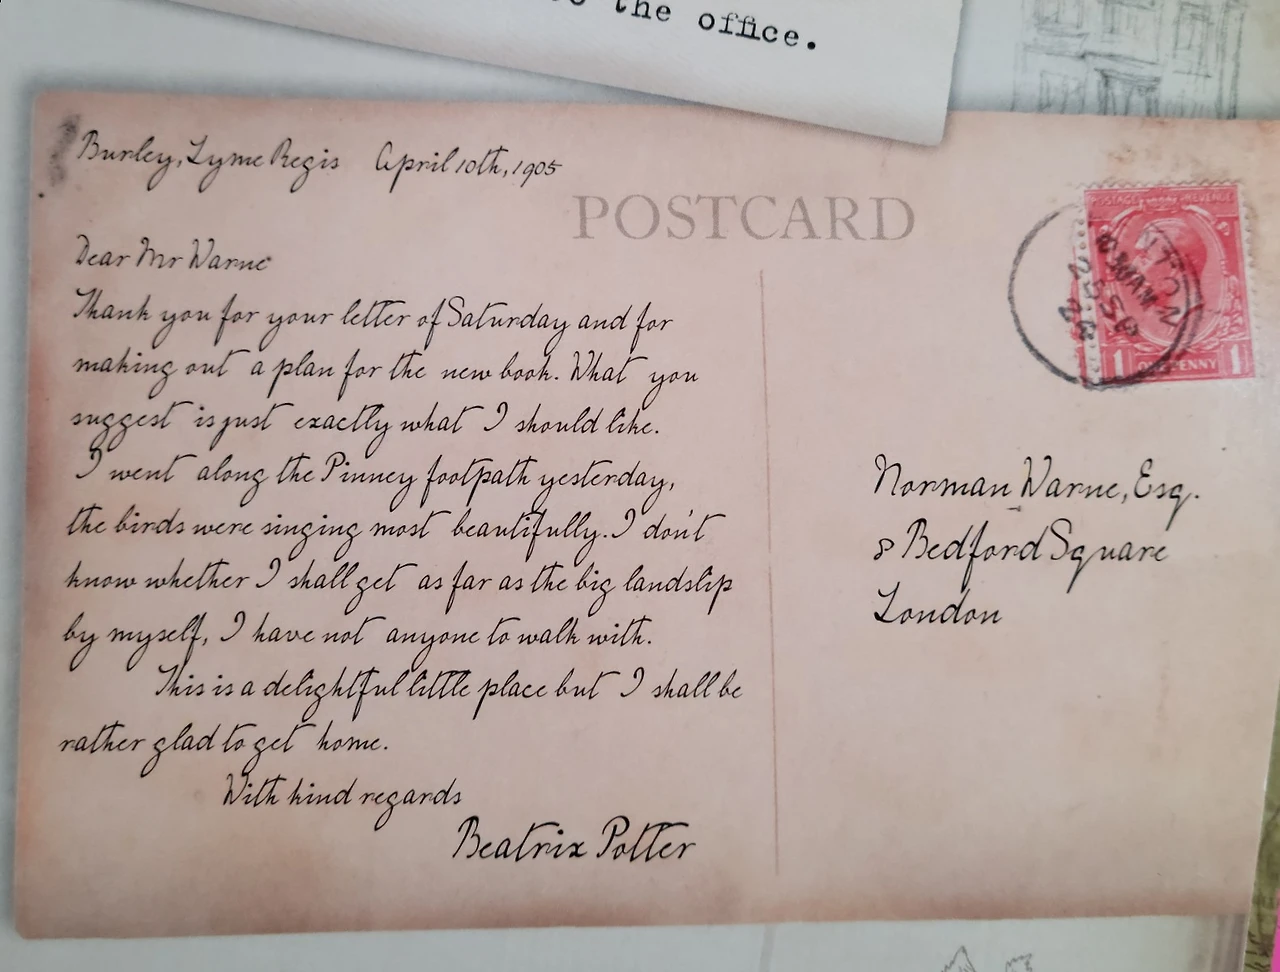 the office.
Burley, Lyme Regis April 10th, 1905
POSTCARD
Dear Mr Warne
Thank you for your letter of Saturday and for
making out a plan for the new book. What you
suggest is just exactly what I should like.
I went along the Pinney footpath yesterday,
the birds were singing most beautifully. I don't
know whether I shall get as far as the big landslip
by myself, I have not anyone to walk with.
This is a delightful little place but I shall be
rather glad to get home.
With kind regards
Beatrix Potter
POSTAGE REVENUE
1 ONE PENNY 1
Norman Warne, Esq.
8 Bedford Square
London